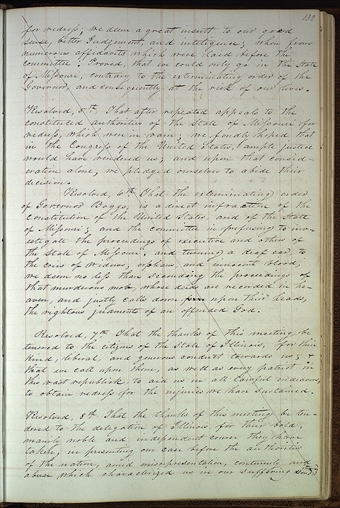 139
for redress; we deem a great insult to our good
sense, better Judgement, and intelligence; when from
numerous affidavits which were laid before the
committee, Proved, that we could only go in the State
of Missouri, contrary to the exterminating order of the
Governor, and consequently at the risk of our lives.
Resolved, 5th, That after repeated appeals to the
constituted authorities of the State of Missouri for
redress, which were in vain; we fondly hoped that
in the Congress of the United States, ample justice
would have rendered us; and upon that consid-
eration alone, we pledged ourselves to abide their
decision.
Resolved, 6th, That the exterminating order
of Governor Boggs, is a direct infraction of the
Constitution of the United States, and of the State
of Missouri; and the committee in refusing to inv-
estigate the proceedings of executive and others of
the State of Missouri, and turning a deaf ear to
the cries of widows, orphans, and innocent blood,
we deem no less than seconding the proceedings of
that murderous mob, whose deeds are recorded in he-
aven, and justly calls down upon their heads,
the righteous judgments of an offended God.
Resolved, 7th, That the thanks of this meeting, be
tendered to the citizens of the State of Illinois, for their
kind, liberal, and generous conduct towards us; &
that we call upon them, as well as every patriot in
this vast republick, to aid us in all lawful endeavors
to obtain redress for the injuries we have sustained.
Resolved, 8th, That the thanks of this meeting be ten-
dered to the delegation of Illinois, for their bold,
manly, noble and independent course they have
taken, in presenting our case before the authorities
of the nation, amid misrepresentation, contumely and
abuse which characterized us in our suffering